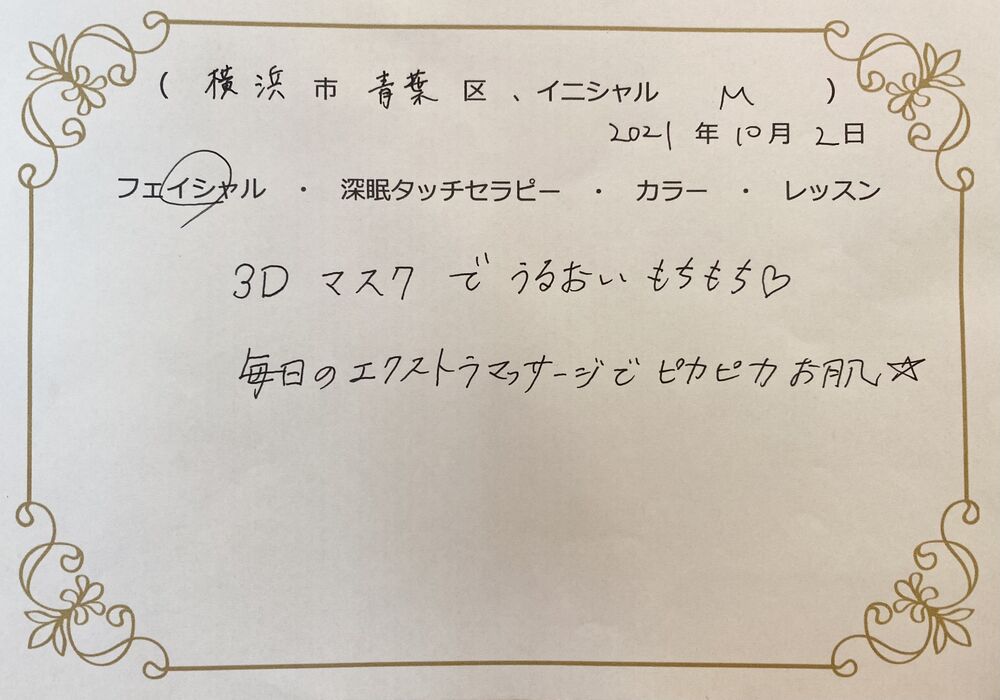 ( 横浜 市 青葉 区 、イニシャル M )
2021 年 10 月 2 日
フェイシャル ・ 深眠タッチセラピー ・ カラー ・ レッスン
3D マスク で うるおい もちもち♡
毎日のエクストラマッサージで ピカピカ お肌☆